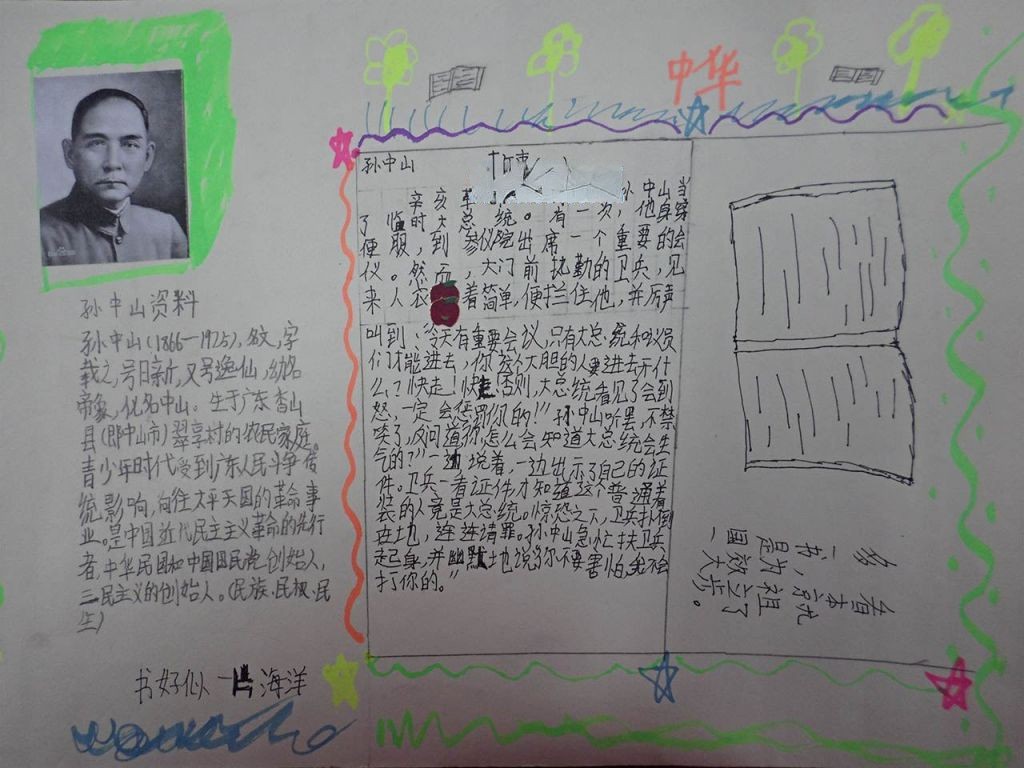 中华
孙中山
辛亥 孙中山当
了临时大总统。有一次,他身穿
便服,到参议院出席一个重要的会
议。然而,大门前执勤的卫兵,见
来人衣着简单,便拦住他,并厉声
叫到:“今天有重要会议,只有大总统和议员
们才能进去,你这个大胆的人要进去干什
么?快走!快走!否则,大总统看见了会到
怒,一定会惩罚你的!”孙中山听罢,不禁
笑了,反问道“你怎么会知道大总统会生
气的?”一边说着,一边出示了自己的证
件。卫兵一看证件才知道这个普通着
装的人竟是大总统。惊恐之下,卫兵扑倒
在地,连连请罪。孙中山急忙扶卫兵
起身,并幽默地说“你不要害怕,我不会
打你的。”
孙中山资料
孙中山(1866—1925),名文,字
载之,号日新,又号逸仙,幼名
帝象,化名中山。生于广东香山
县(即中山市)翠亨村的农民家庭。
青少年时代受到广东人民斗争传
统影响,向往太平天国的革命事
业。是中国近代民主主义革命的先行
者,中华民国和中国国民党创始人,
三民主义的创始人。(民族、民权、民
生)
书好似一片海洋